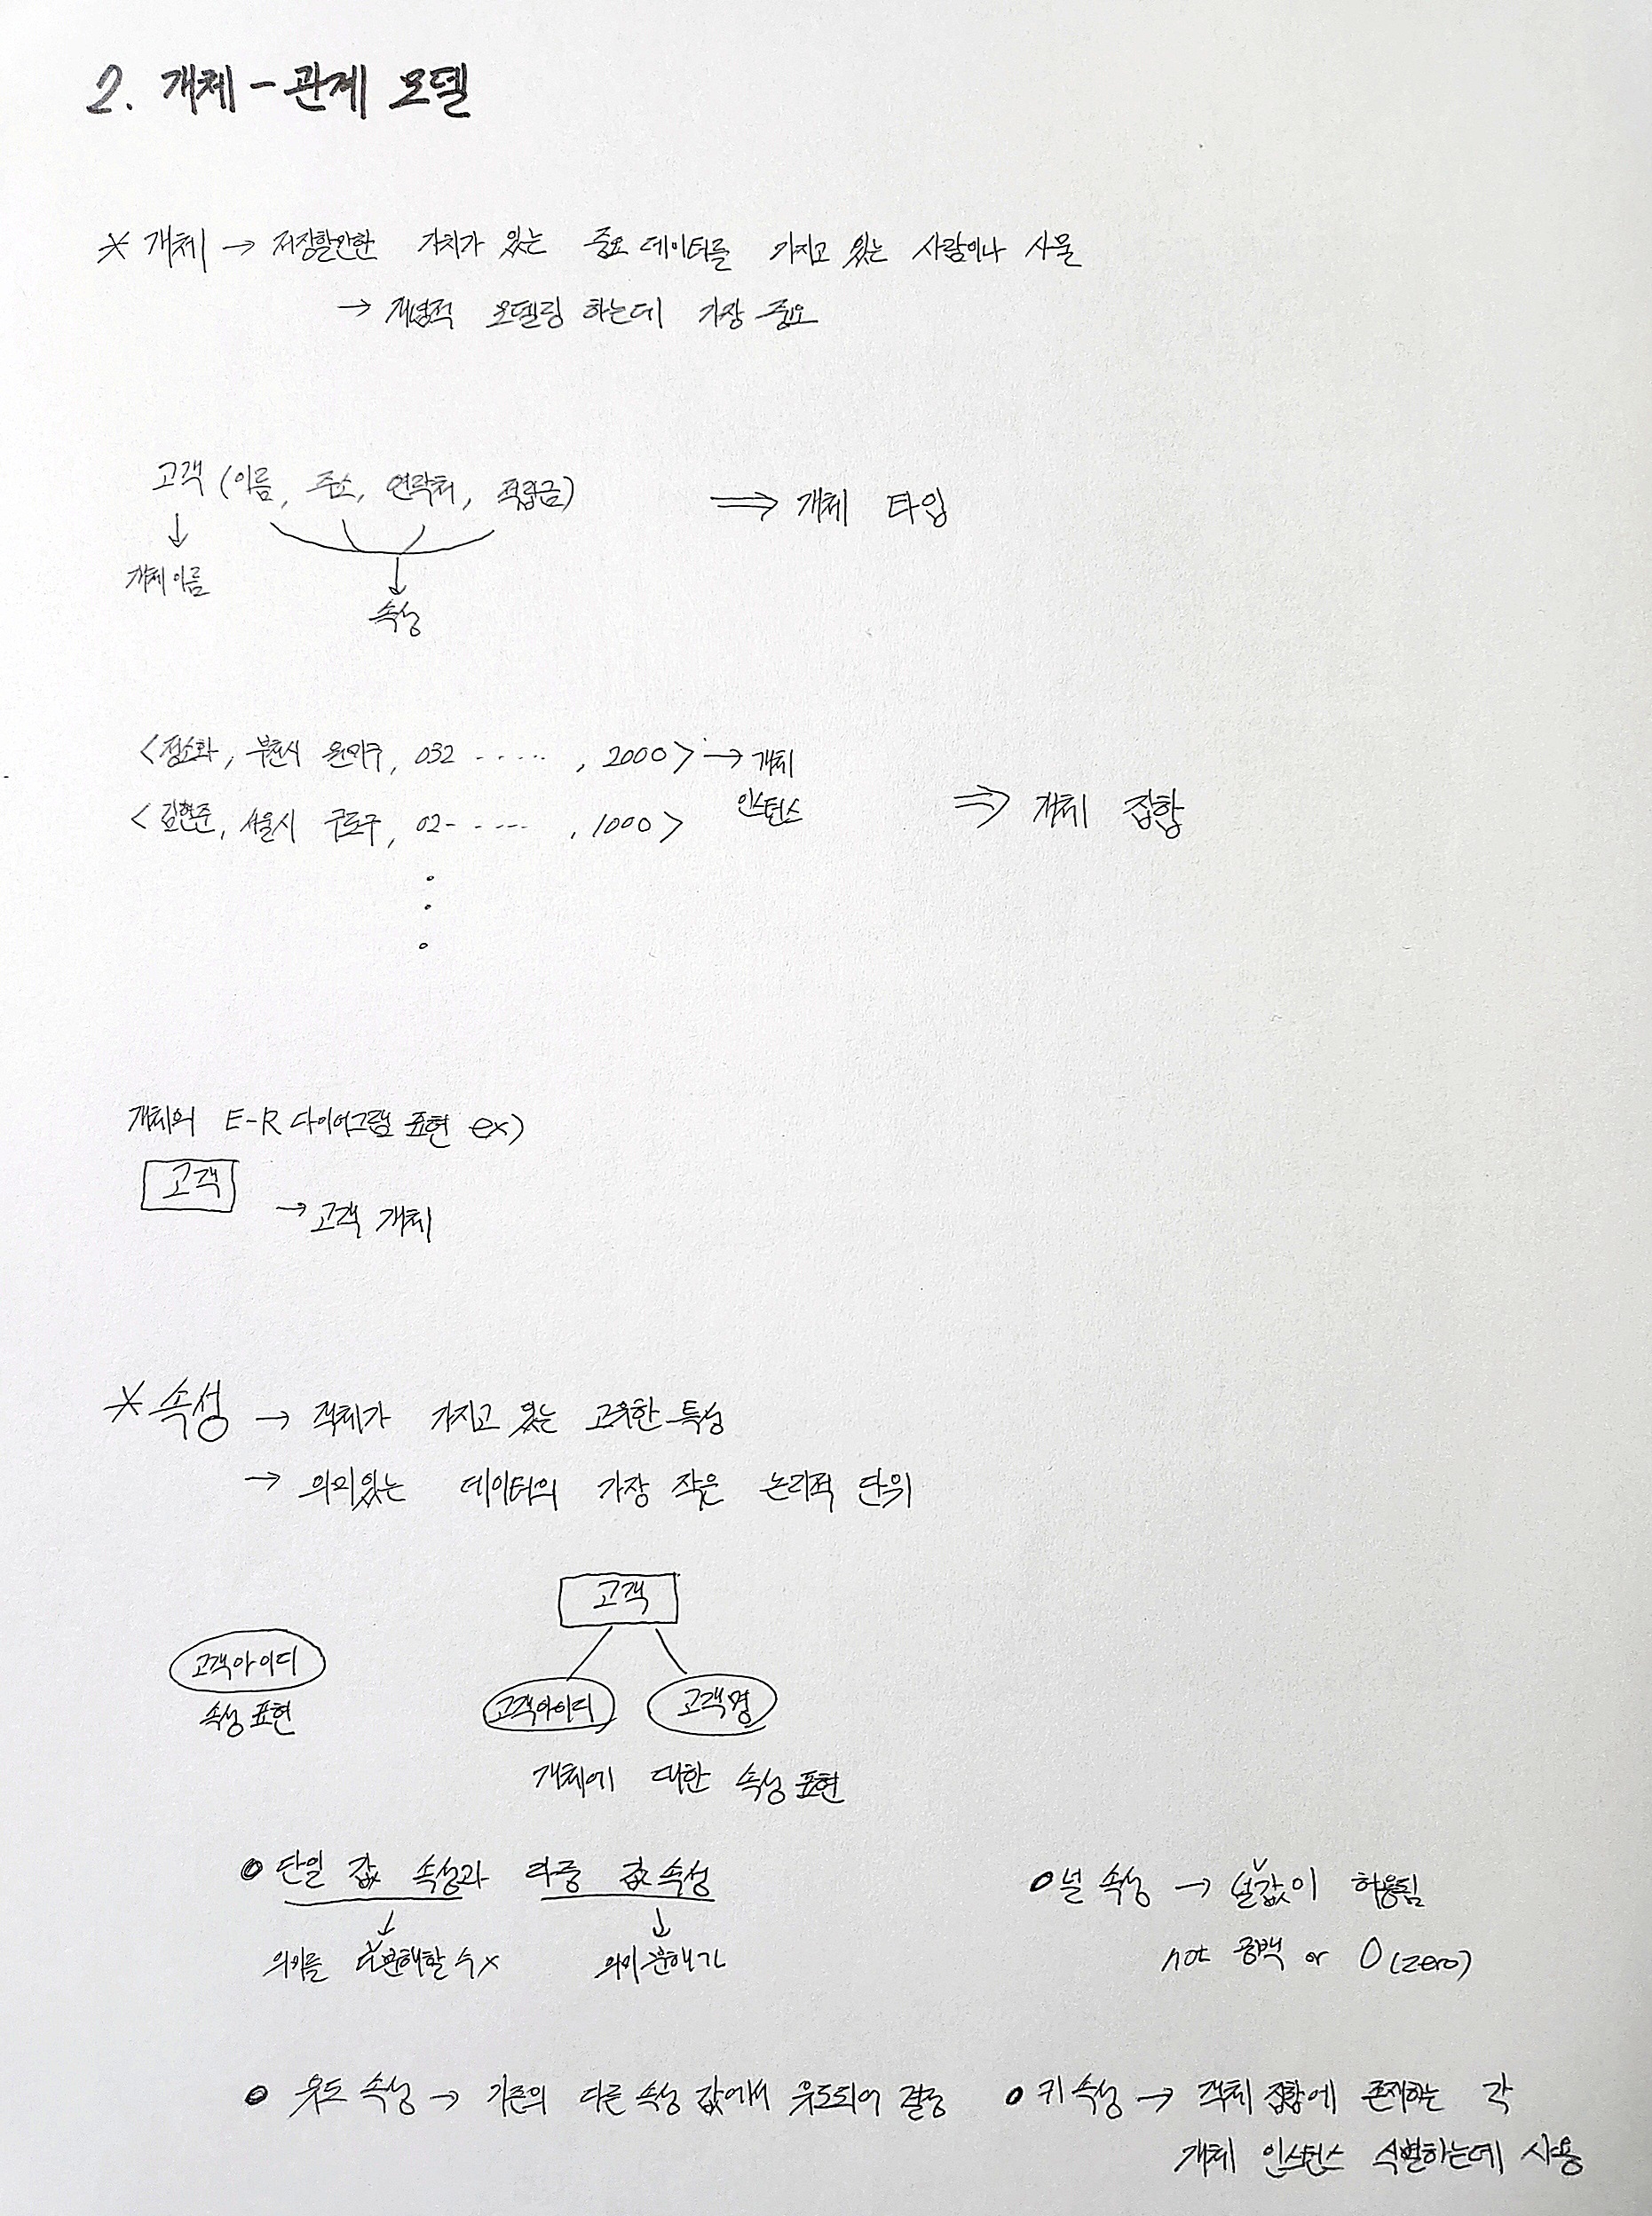 2. 개체 - 관계 모델
* 개체 → 저장할만한 가치가 있는 중요 데이터를 가지고 있는 사람이나 사물
→ 개념적 모델링 하는데 가장 중요
고객 (이름, 주소, 연락처, 적립금) ⇒ 개체 타입
↓
개체 이름
↓
속성
<정소화, 부천시 원미구, 032 ······, 2000> → 개체
인스턴스
<김현준, 서울시 구로구, 02- ·----, 1000>
⇒ 개체 집합
개체의 E-R 다이어그램 표현 ex)
고객
→ 고객 개체
* 속성 → 객체가 가지고 있는 고유한 특성
→ 의미있는 데이터의 가장 작은 논리적 단위
고객
고객아이디
속성 표현
고객아이디 고객명
개체에 대한 속성 표현
• 단일 값 속성과 다중 값 속성
↓ ↓
의미를 더 분해할 수 x 의미 분해가
• 널 속성 → 널 값이 허용됨
not 공백 or 0 (zero)
• 유도 속성 → 기존의 다른 속성 값에서 유도되어 결정
• 키 속성 → 객체 집합에 존재하는 각
개체 인스턴스 식별하는데 사용